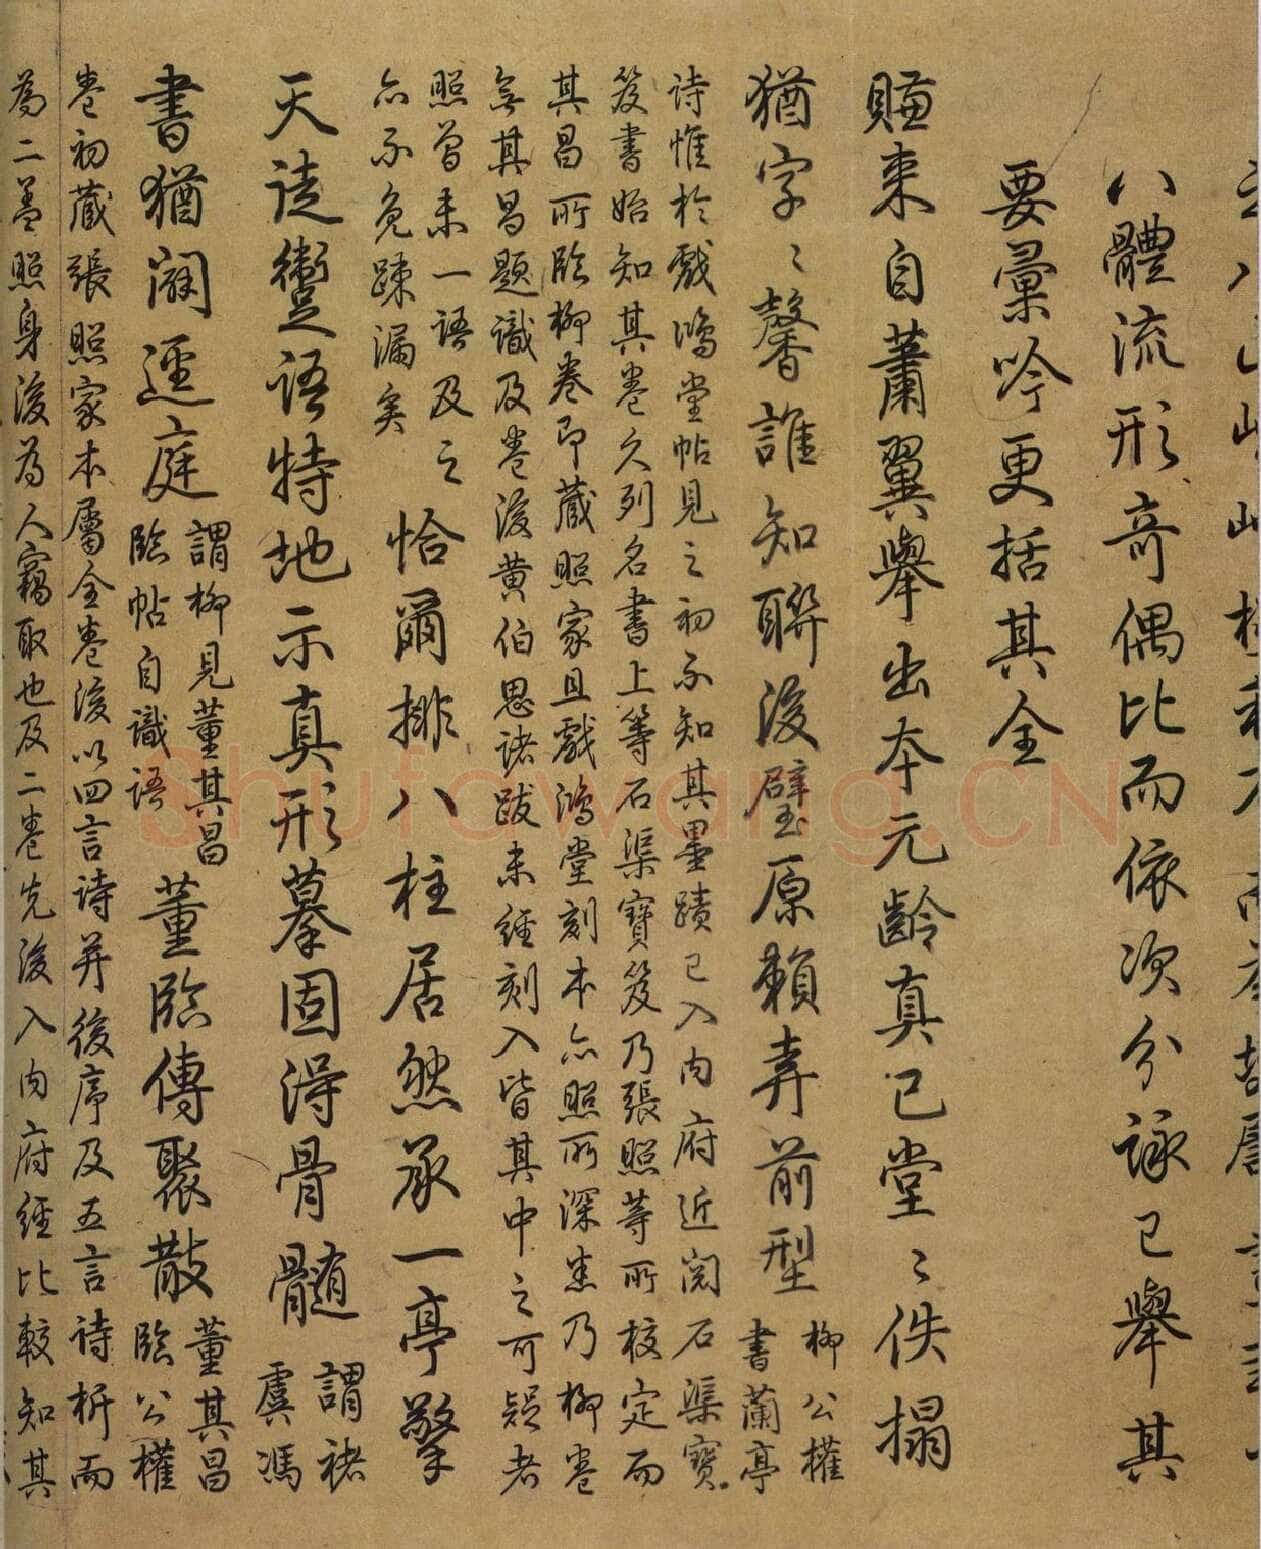 八體流形奇偶比而依次分詠已舉其
要彙吟更括其全
賺来自蕭翼舉出本元齡真已堂〻佚搨
猶字〻馨誰知聯後璧原賴弆前型 柳公權
書蘭亭
詩惟於戲鴻堂帖見之初不知其墨蹟已入内府近閲石渠寶
笈書始知其卷久列名書上等石渠寶笈乃張照等所校定而
其昌所臨柳卷即藏照家且戲鴻堂刻本亦照所深悉乃柳卷
無其昌題識及卷後黄伯思諸跋未經刻入皆其中之可疑者
照曾未一語及之
亦不免踈漏矣
恰爾排八柱居然承一亭擎
天徒躗語特地示真形摹固得骨髓 謂褚
虞馮
書猶闊逕庭 謂柳見董其昌
臨帖自識語
董臨傳聚散 董其昌
臨公權
卷初藏張照家本屬全卷後以四言詩并後序及五言詩析而
為二蓋照身後為人竊取也及二卷先後入内府經比較知其
Shufawang.CN